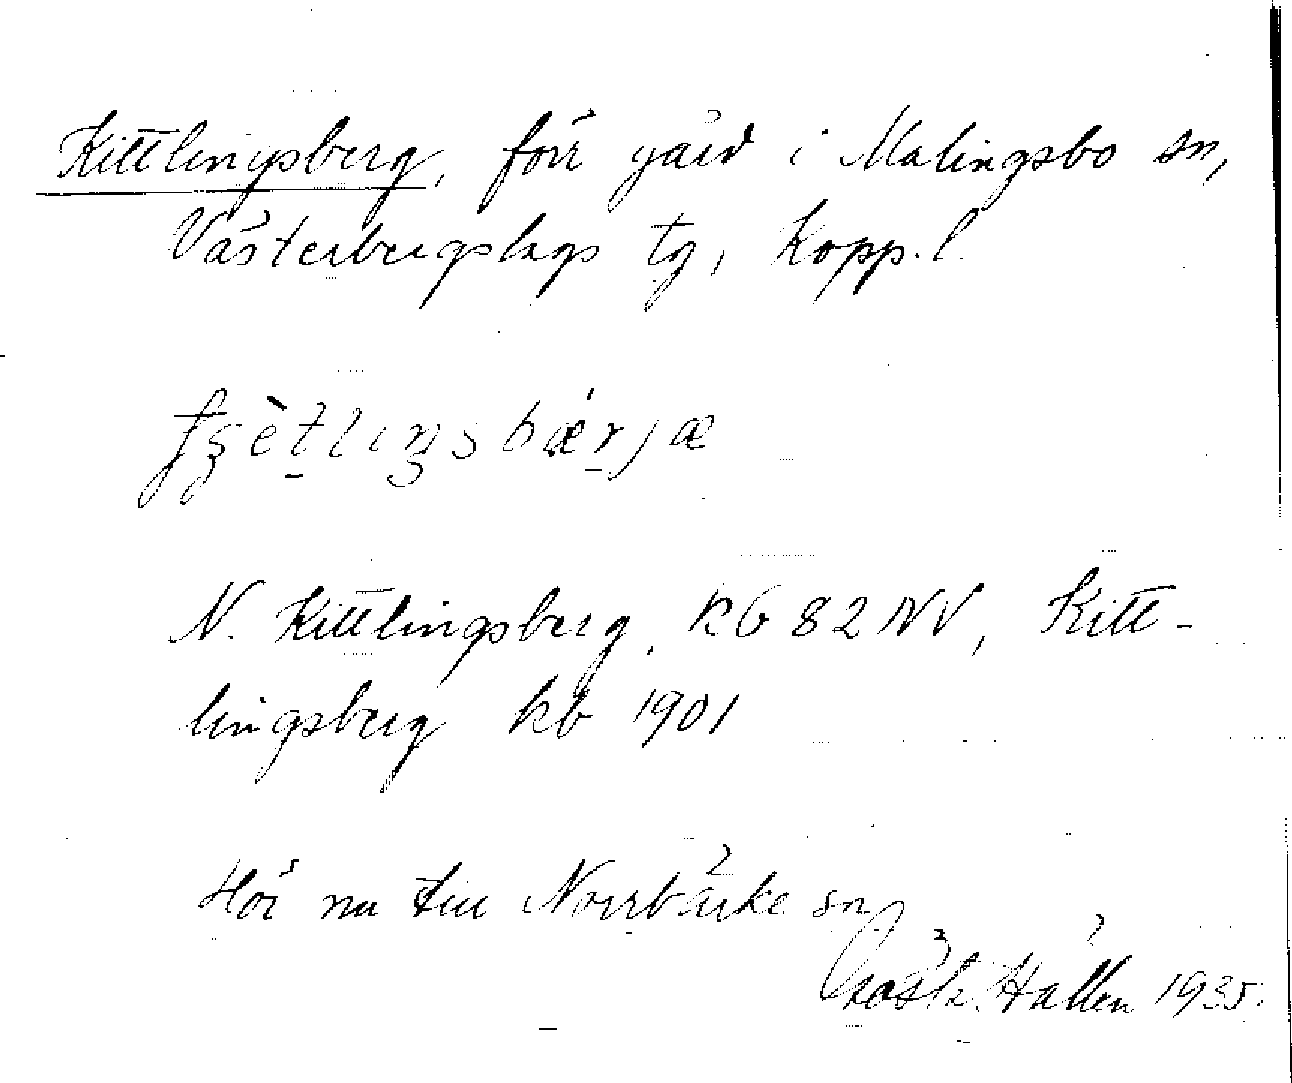 Kittlingsberg, förr gård i Malingsbo sn,
Västerbergslags tg, Kopp. l.
N. Kittlingsberg, kb 82 NV, Kitt-
lingsberg kb 1901
Hör nu till Norrbärke sn
Hallén 1935.